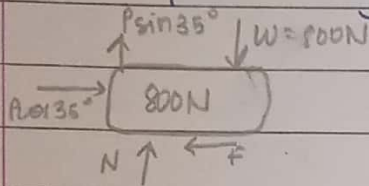 Psin35° W=800N
Pcos35° 800N
N F